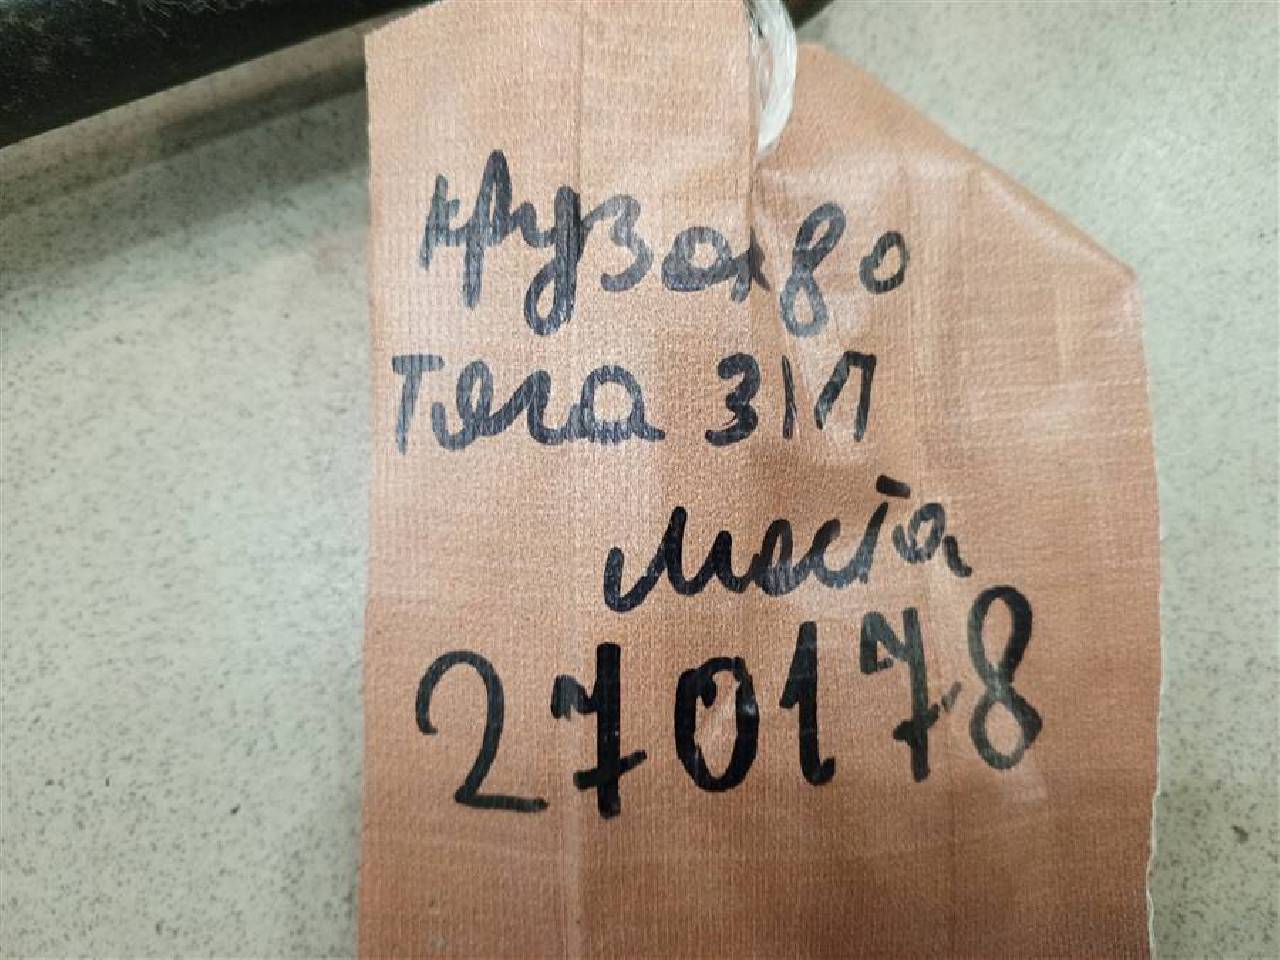 Круза 80
Тяга З/П
Места
270178